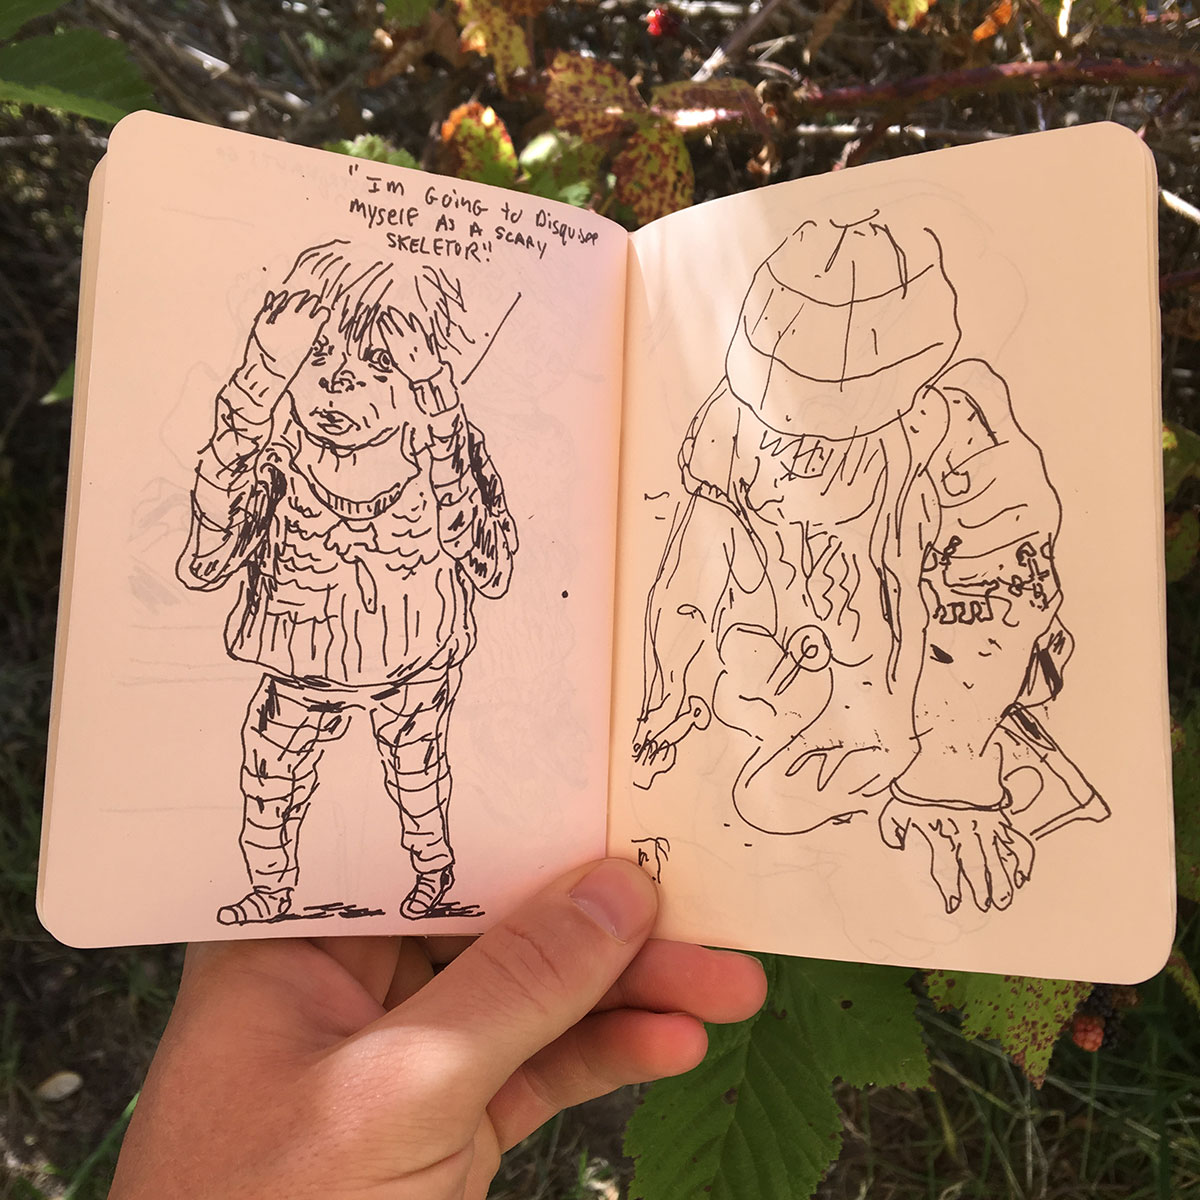 "Im GoinG to DisQuise
myself As A SCARY
SKELETOR."